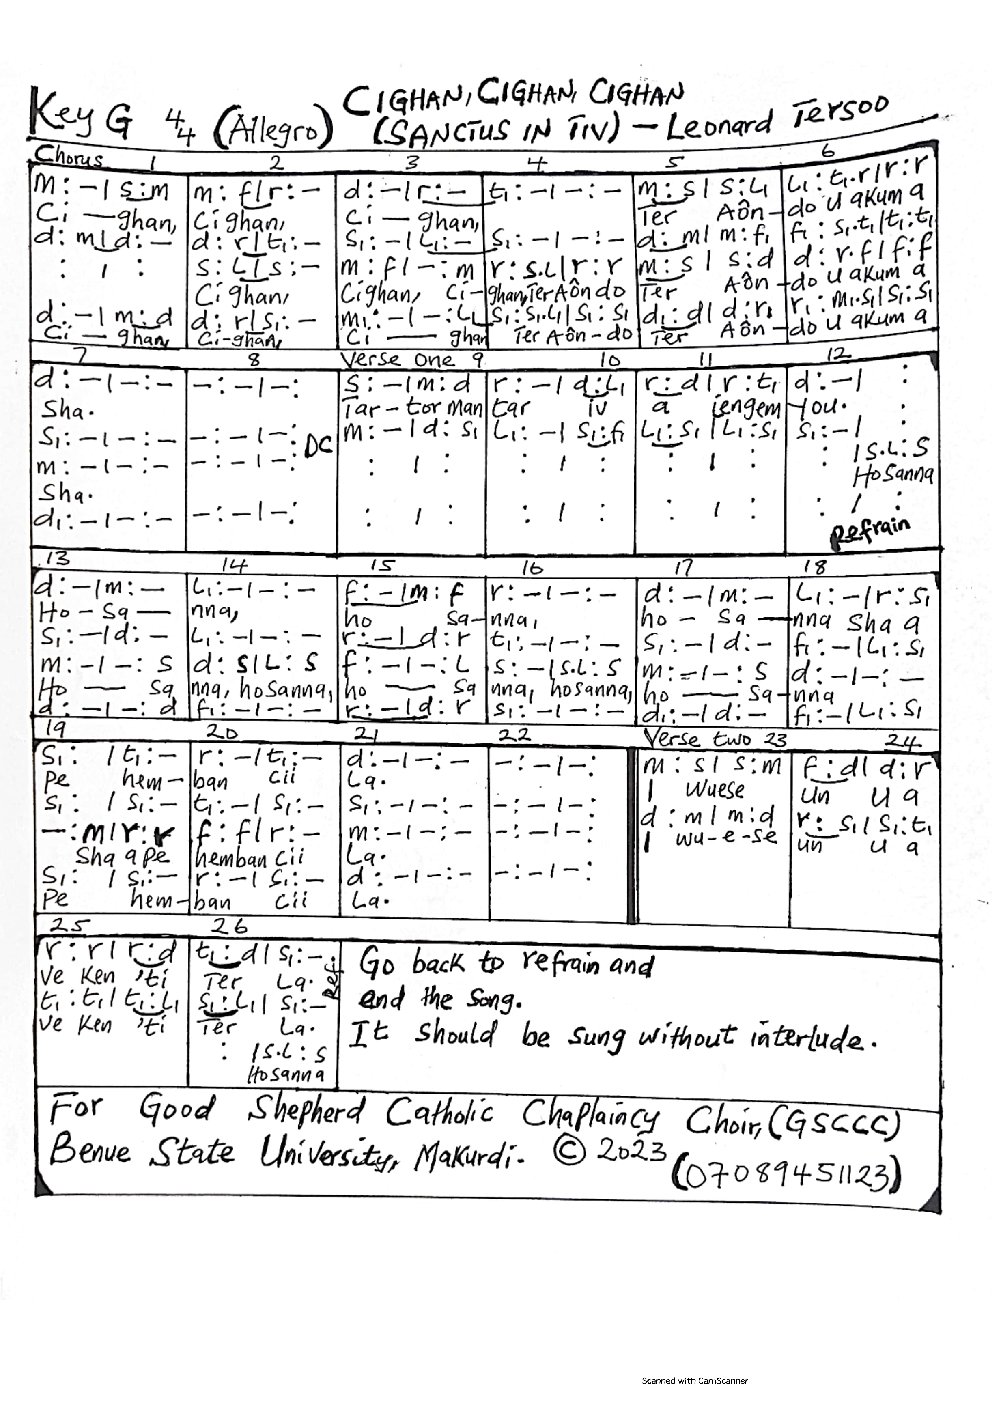 CIGHAN, CIGHAN, CIGHAN
Key G 4/4 (Allegro) (SANCTUS IN TIV) – Leonard Tersoo
Chorus 1 2 3 4 5 6
m : – | s : m m : f | r : – d : – | r : – t₁ : – | – : – m : s | s : L₁ L₁ : t₁.r | r : r
Ci — ghan, Cighan, Ci — ghan, Ter Aôn – do u akuma
d : m | d : – d : r | t₁ : – S₁ : – | L₁ : – S₁ : – | – : – d : m | m : f₁ f₁ : s₁.t₁ | t₁ : t₁
: | : s : L | s : – m : f | – : m r : s.L | r : r m : s | s : d d : r.f | f : f
Cighan, Cighan, Ci – ghan, Ter Aôn do Ter Aôn – do u akuma
d : – | m : d d : r | s₁ : – m₁ : – | – : L₁ S₁ : S₁.L₁ | S₁ : S₁ d₁ : d | d : r₁ r₁ : m₁.s₁ | s₁ : s₁
Ci — ghan, Ci-ghan, Ci — ghan Ter Aôn – do Ter Aôn – do u akuma
7 8 Verse one 9 10 11 12
d : – | – : – – : – | – : S : – | m : d r : – | d : L₁ r : d | r : t₁ d : – | :
Sha. Tar – tor man tar iv a iengem – you. :
S₁ : – | – : – – : – | – : DC m : – | d : s₁ L₁ : – | s₁ : f₁ L₁ : s₁ | L₁ : s₁ s₁ : – | :
m : – | – : – – : – | – : : | : : | : : | : : | s.L : s
Sha. Hosanna
d₁ : – | – : – – : – | – : : | : : | : : | : : | :
Refrain
13 14 15 16 17 18
d : – | m : – L₁ : – | – : – f : – | m : f r : – | – : – d : – | m : – L₁ : – | r : s₁
Ho – Sa — nna, ho sa – nna, ho – sa — nna sha a
S₁ : – | d : – L₁ : – | – : – r : – | d : r t₁ : – | – : – S₁ : – | d : – f₁ : – | L₁ : s₁
m : – | – : s d : s | L : s f : – | – : L s : – | s.L : s m : – | – : s d : – | – : –
Ho — sa nna, hosanna, ho — sa nna, hosanna, ho — sa – nna
d : – | – : d f₁ : – | – : – r : – | d : r s₁ : – | – : – d₁ : – | d : – f₁ : – | L₁ : s₁
19 20 21 22 Verse two 23 24
S₁ : | t₁ : – r : – | t₁ : – d : – | – : – – : – | – : m : s | s : m f : d | d : r
pe hem – ban cii La. I wuese un u a
S₁ : | s₁ : – t₁ : – | s₁ : – S₁ : – | – : – – : – | – : d : m | m : d r : s₁ | s₁ : t₁
– : m | r : r f : f | r : – m : – | – : – – : – | – : I wu-e-se un u a
sha a pe hemban cii La.
S₁ : | s₁ : – r : – | s₁ : – d : – | – : – – : – | – :
pe hem – ban cii La.
25 26
r : r | r : d t₁ : d | s₁ : – Ref.
ve ken 'ti Ter La.
t₁ : t₁ | t₁ : L₁ s₁ : L₁ | s₁ : –
ve ken 'ti Ter La.
: | s.L : s
Hosanna
Go back to refrain and
end the song.
It should be sung without interlude.
For Good Shepherd Catholic Chaplaincy Choir, (GSCCC)
Benue State University, Makurdi. © 2023
(07089451123)
Scanned with CamScanner